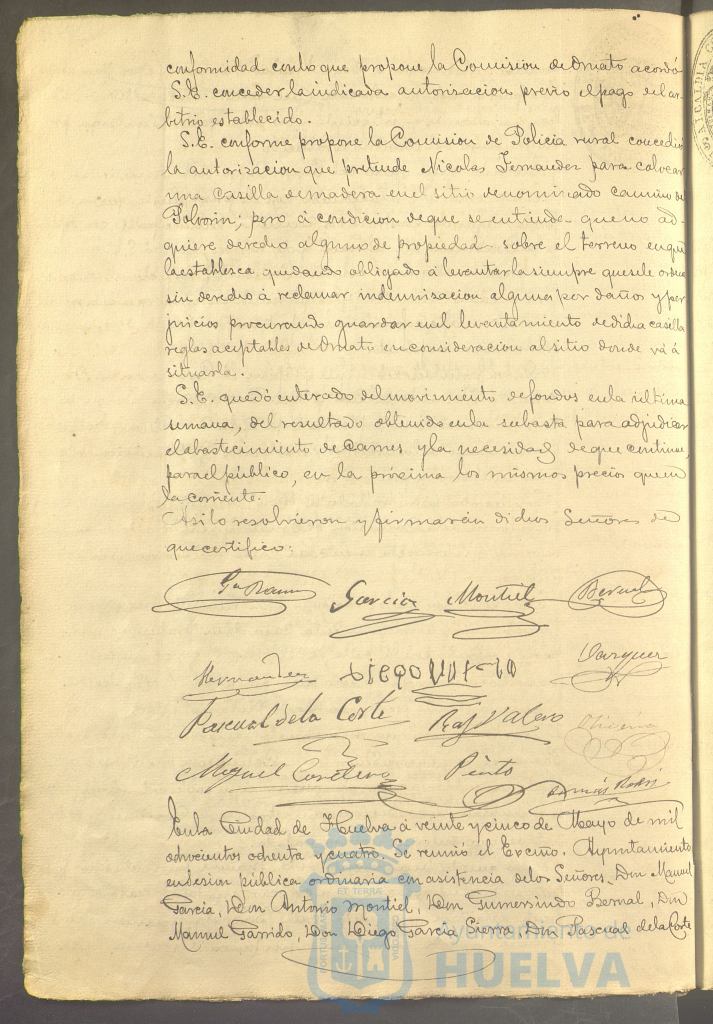 conformidad conlo que propone la Comision de Ornato acordó
S.E. conceder la indicada autorizacion previo el pago del ar-
bitrio establecido.
S.E. conforme propone la Comision de Policia rural concedió
la autorizacion que pretende Nicolas Fernandez para colocar
una casilla de madera en el sitio denominado camino de
Polvorin; pero á condicion de que se entienda que no ad-
quiere derecho alguno de propiedad sobre el terreno en que
la establezca quedando obligado á levantarla siempre que se le ordene
sin derecho á reclamar indemnizacion alguna por daños y per
juicios procurando guardar en el levantamiento de dicha casilla
reglas aceptables de Ornato en consideracion al sitio donde vá á
situarla.
S.E. quedó enterado del movimiento de fondos en la ultima
semana, del resultado obtenido en la subasta para adjudicar
el abastecimiento de Carnes y la necesidad de que continue,
para el público, en la próxima los mismos precios que en
la corriente.
Asi lo resolvieron y firmarán dichos Señores de
que certifico:
Garcia Montiel Bernal
Hernandez Vazquez
Pascual de la Corte Raf Valero
Miguel Pinto
En la Ciudad de Huelva á veinte y cinco de Mayo de mil
ochocientos ochenta y cuatro. Se reunió el Excmo. Ayuntamiento
en sesion pública ordinaria con asistencia de los Señores Don Manuel
Garcia, Don Antonio Montiel, Don Gumersindo Bernal, Don
Manuel Garrido, Don Diego Garcia Sierra, Don Pascual de la Corte
Ayuntamiento de
HUELVA